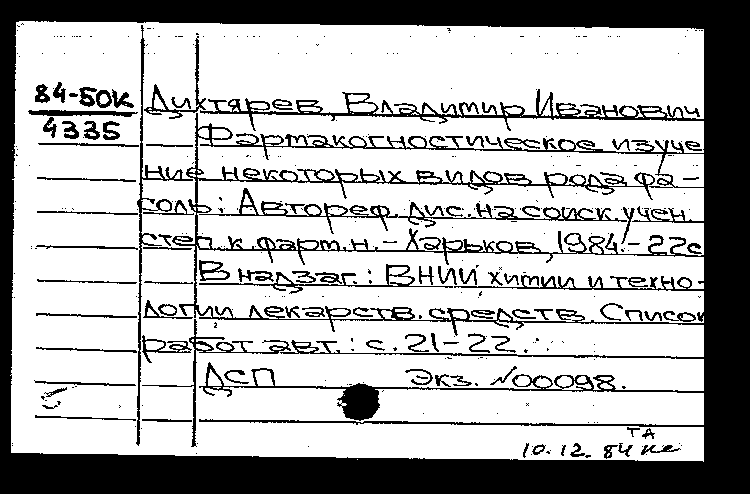 84-50К Дихтярев, Владимир Иванович
4335 Фармакогностическое изуче
ние некоторых видов рода фа-
соль: Автореф. дис. на соиск. учен.
степ. к. фарм. н. - Харьков, 1984. - 22с
В надзаг.: ВНИИ химии и техно-
логии лекарств. средств. Список
работ авт.: с. 21-22.
ДСП Экз. №00098.
ТА
10.12.84